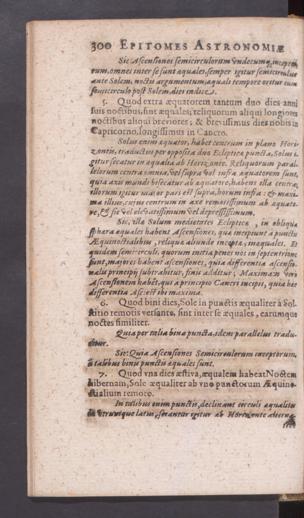 300 EPITOMES ASTRONOMIÆ
Sic Ascensiones semicirculorum undecunque incepto-
rum, omnes inter se sunt æquales, semper igitur semicirculus
ante Solem, noctis argumentum, æquali tempore oritur cum
semicirculo post Solem, diei indice.
5. Quod extra æquatorem tantum duo dies anni
suis noctibus, sint æquales, reliquorum aliqui longiores
noctibus aliqui breviores, & brevissimus dies nobis in
Capricorno, longissimus in Cancro.
Solus enim æquator, habet centrum in plano Hori-
zontis, traductus per opposita duo Eclipticæ puncta, Solus i-
gitur secatur in æqualia ab Horizonte. Reliquorum paral-
lelorum centra omnia, vel supra vel infra æquatorem sunt,
quia axis mundi bisecatur ab æquatore, habens ista centra,
illorum igitur una pars est supra, horum infra: & maxi-
ma illius, cujus centrum in axe remotissimum ab æquato-
re, & sic vel elevatissimum vel depressissimum.
Sic, illæ Solum medietates Eclipticæ, in obliqua
sphæra æquales habent Ascensiones, quæ incipiunt à punctis
Æquinoctialibus, reliquæ aliunde inceptæ, inæquales. Et
quidem semicirculi, quorum initia penes nos in septentrione
sunt, majores habent ascensiones, quia differentia ascensio-
nalis principij subtrahitur, finis additur; Maximam verò
Ascensionem habet, qui a principio Cancri incipit, quia hec
differentia Ascens: ibi maxima.
6. Quod bini dies, Sole in punctis æqualiter à Sol-
stitio remotis versante, sint inter se æquales, earumque
noctes similiter.
Quia per talia bina puncta, idem parallelus tradu-
citur.
Sic: Quia Ascensiones Semicirculorum inceptorum,
à talibus binis punctis æquales sunt.
7. Quod una dies æstiva, æqualem habeat Noctem
hibernam, Sole æqualiter ab uno punctorum Æquino-
ctialium remoto.
In talibus enim punctis, declinant circuli æqualiter
in utrumque latus, secantur igitur ab Horizonte alterna-